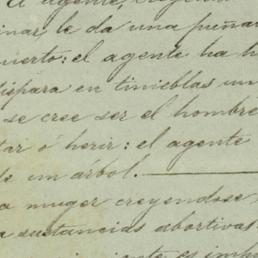 El agente, creyendo
inar, le da una puñal
uerto: el agente ha h
dispara en tinieblas un
se cree ser el hombre
tar ó herir: el agente
de un árbol.
a muger creyendose
a sustancias abortivas